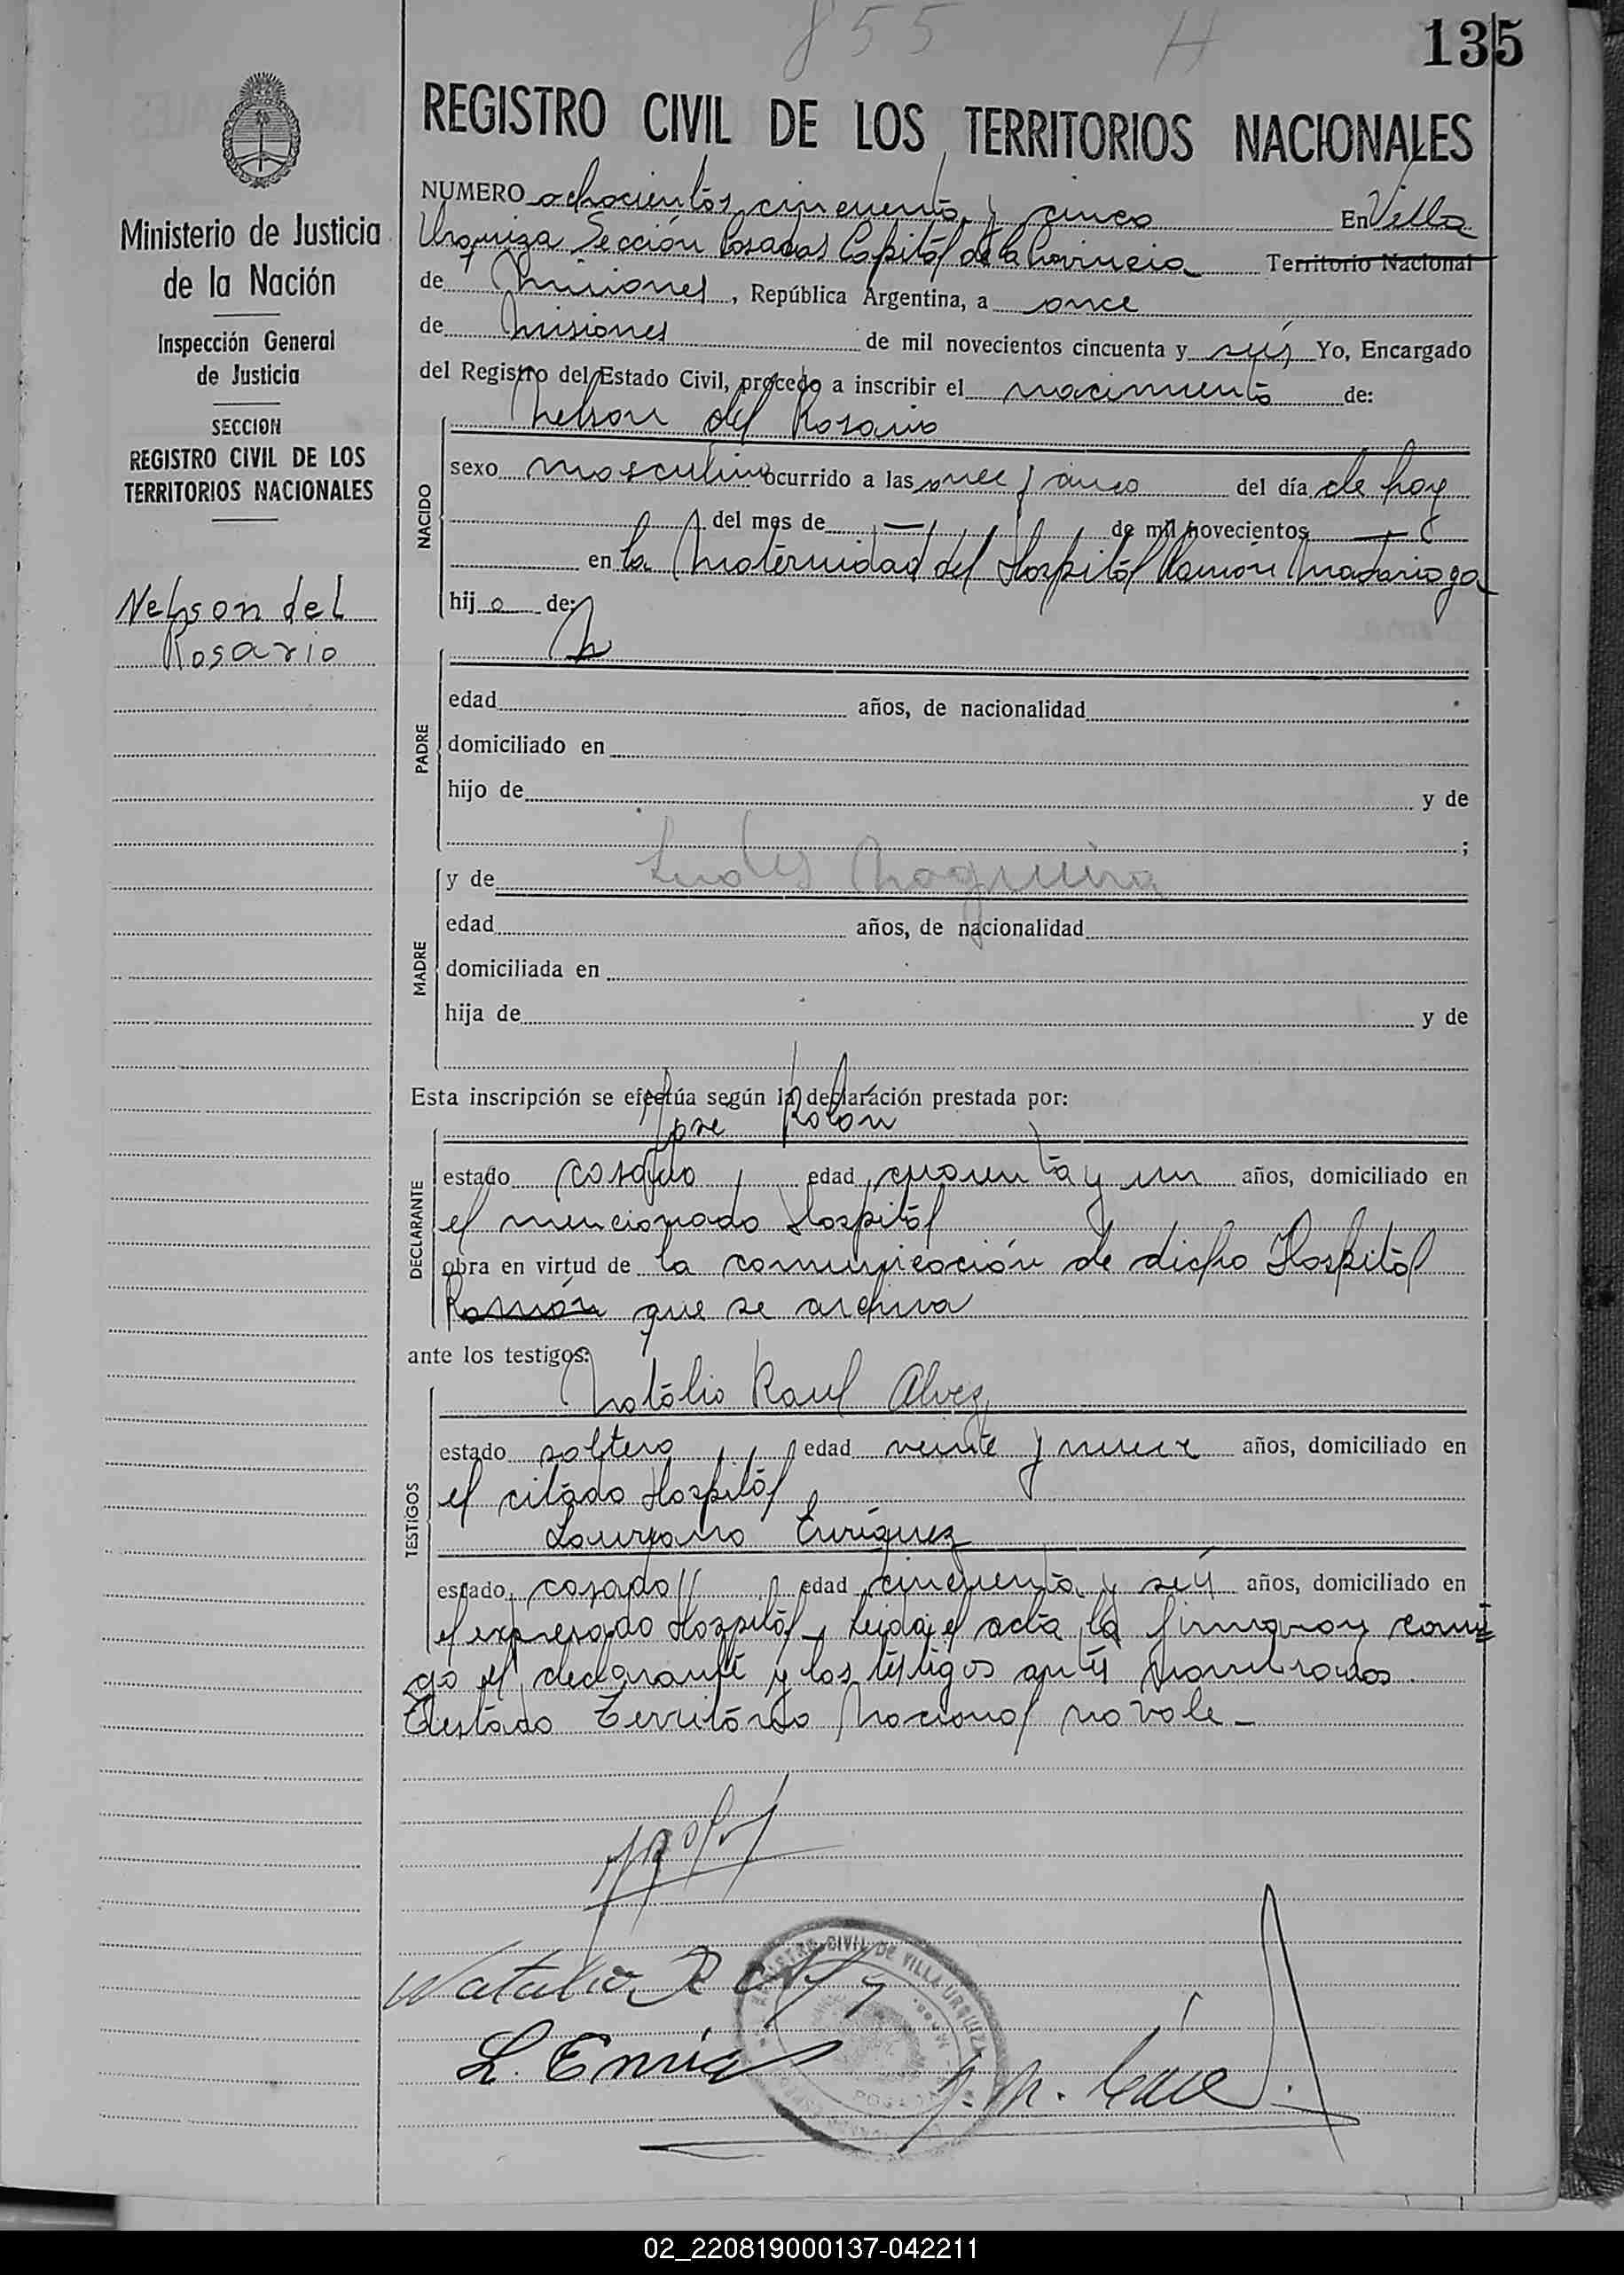 855 H
135
REGISTRO CIVIL DE LOS TERRITORIOS NACIONALES
Ministerio de Justicia
de la Nación
Inspección General
de Justicia
SECCION
REGISTRO CIVIL DE LOS
TERRITORIOS NACIONALES
Nelson del
Rosario
NUMERO ochocientos cincuenta y cinco En Villa
Urquiza Sección Posadas Capital de la Provincia Territorio Nacional
de Misiones, República Argentina, a once
de Misiones de mil novecientos cincuenta y seis Yo, Encargado
del Registro del Estado Civil, procedo a inscribir el nacimiento de:
Nelson del Rosario
NACIDO
sexo masculino ocurrido a las once y cinco del día de hoy
del mes de — de mil novecientos —
en la Maternidad del Hospital Ramón Madariaga
hijo de:
PADRE
edad años, de nacionalidad
domiciliado en
hijo de y de
;
MADRE
y de Noguera
edad años, de nacionalidad
domiciliada en
hija de y de
Esta inscripción se efectúa según la declaración prestada por:
José Rolón
DECLARANTE
estado casado, edad cuarenta y un años, domiciliado en
el mencionado Hospital
obra en virtud de la comunicación de dicho Hospital
Ramón que se archiva
ante los testigos:
Natalio Raul Alvez
TESTIGOS
estado soltero, edad veinte y nueve años, domiciliado en
el citado Hospital
Laureano Enriquez
estado casado edad cincuenta y seis años, domiciliado en
el expresado Hospital - Leida el acta la firmaron conmi
go el declarante y los testigos antes nombrados.
Testado Territorio Nacional no vale -
Natalio R
L. Enriq
REGISTRO CIVIL DE VILLA URQUIZA
POSADAS
02_220819000137-042211